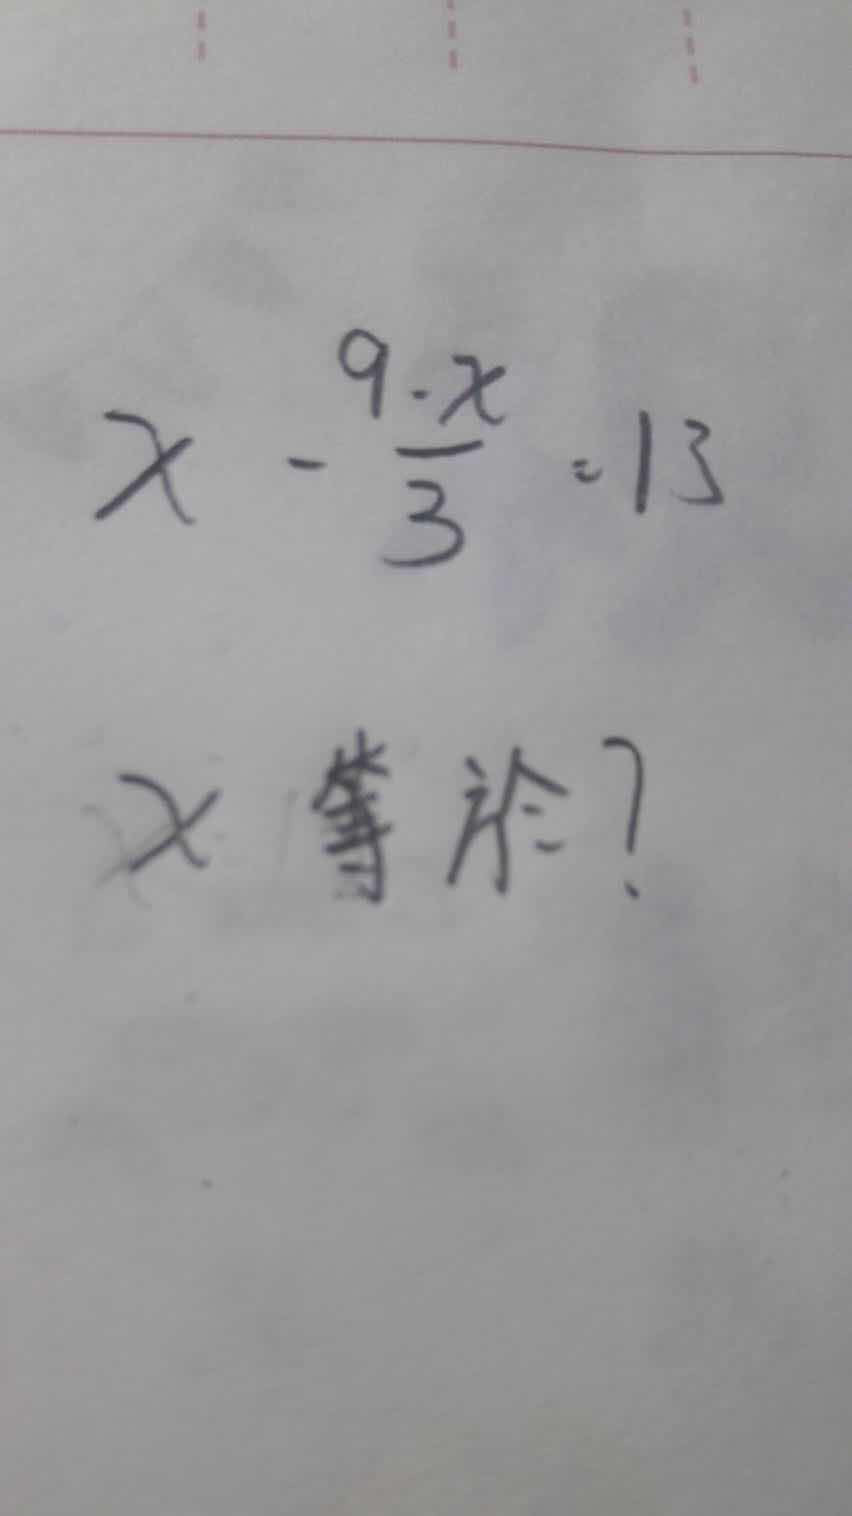 x - 9-x/3 = 13
x 等於?